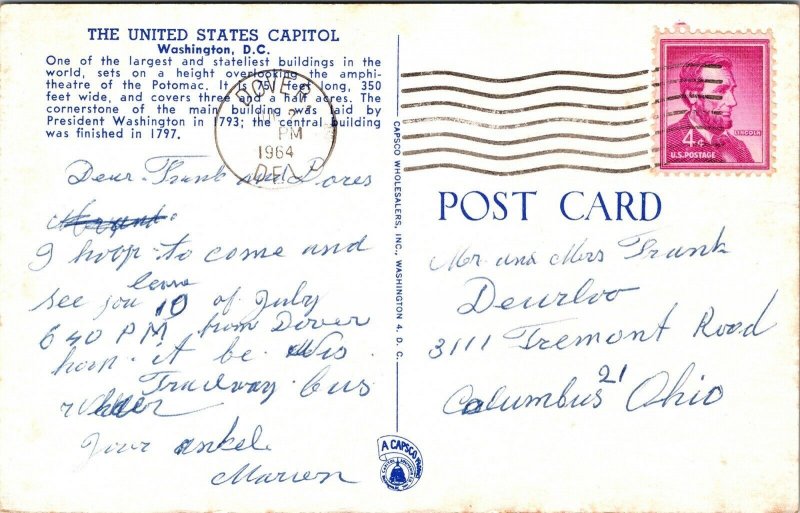 THE UNITED STATES CAPITOL
Washington, D.C.
One of the largest and stateliest buildings in the
world, sets on a height overlooking the amphi-
theatre of the Potomac. It is 751 feet long, 350
feet wide, and covers three and a half acres. The
cornerstone of the main building was laid by
President Washington in 1793; the central building
was finished in 1797.
DOVER
PM
1964
DEL
Dear Frank and Dores
I hoop to come and
leave
see you 10 of July
6 40 PM from Dover
horn it be
Trailway bus
Your onkel
Marion
CAPSCO WHOLESALERS, INC., WASHINGTON 4, D. C.
A CAPSCO
LINCOLN
4¢
U.S. POSTAGE
POST CARD
Mr and Mrs Frank
Deurloo
3111 Tremont Road
Columbus 21 Ohio